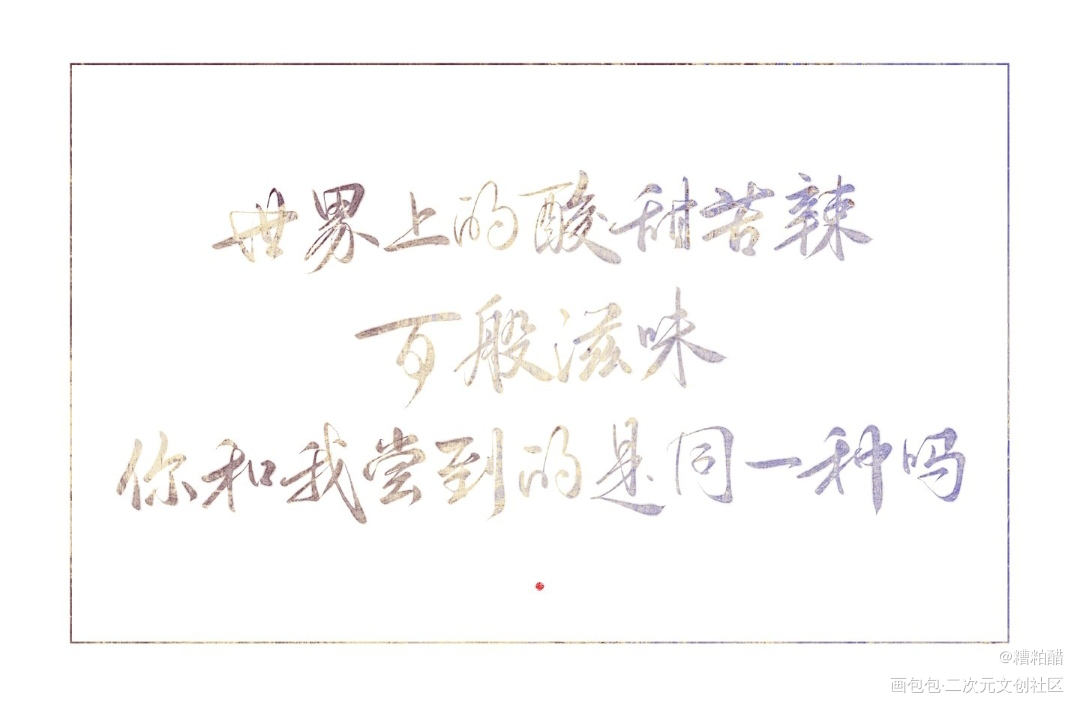 世界上的酸甜苦辣
百般滋味
你和我尝到的是同一种吗
@糟粕醋
画包包·二次元文创社区